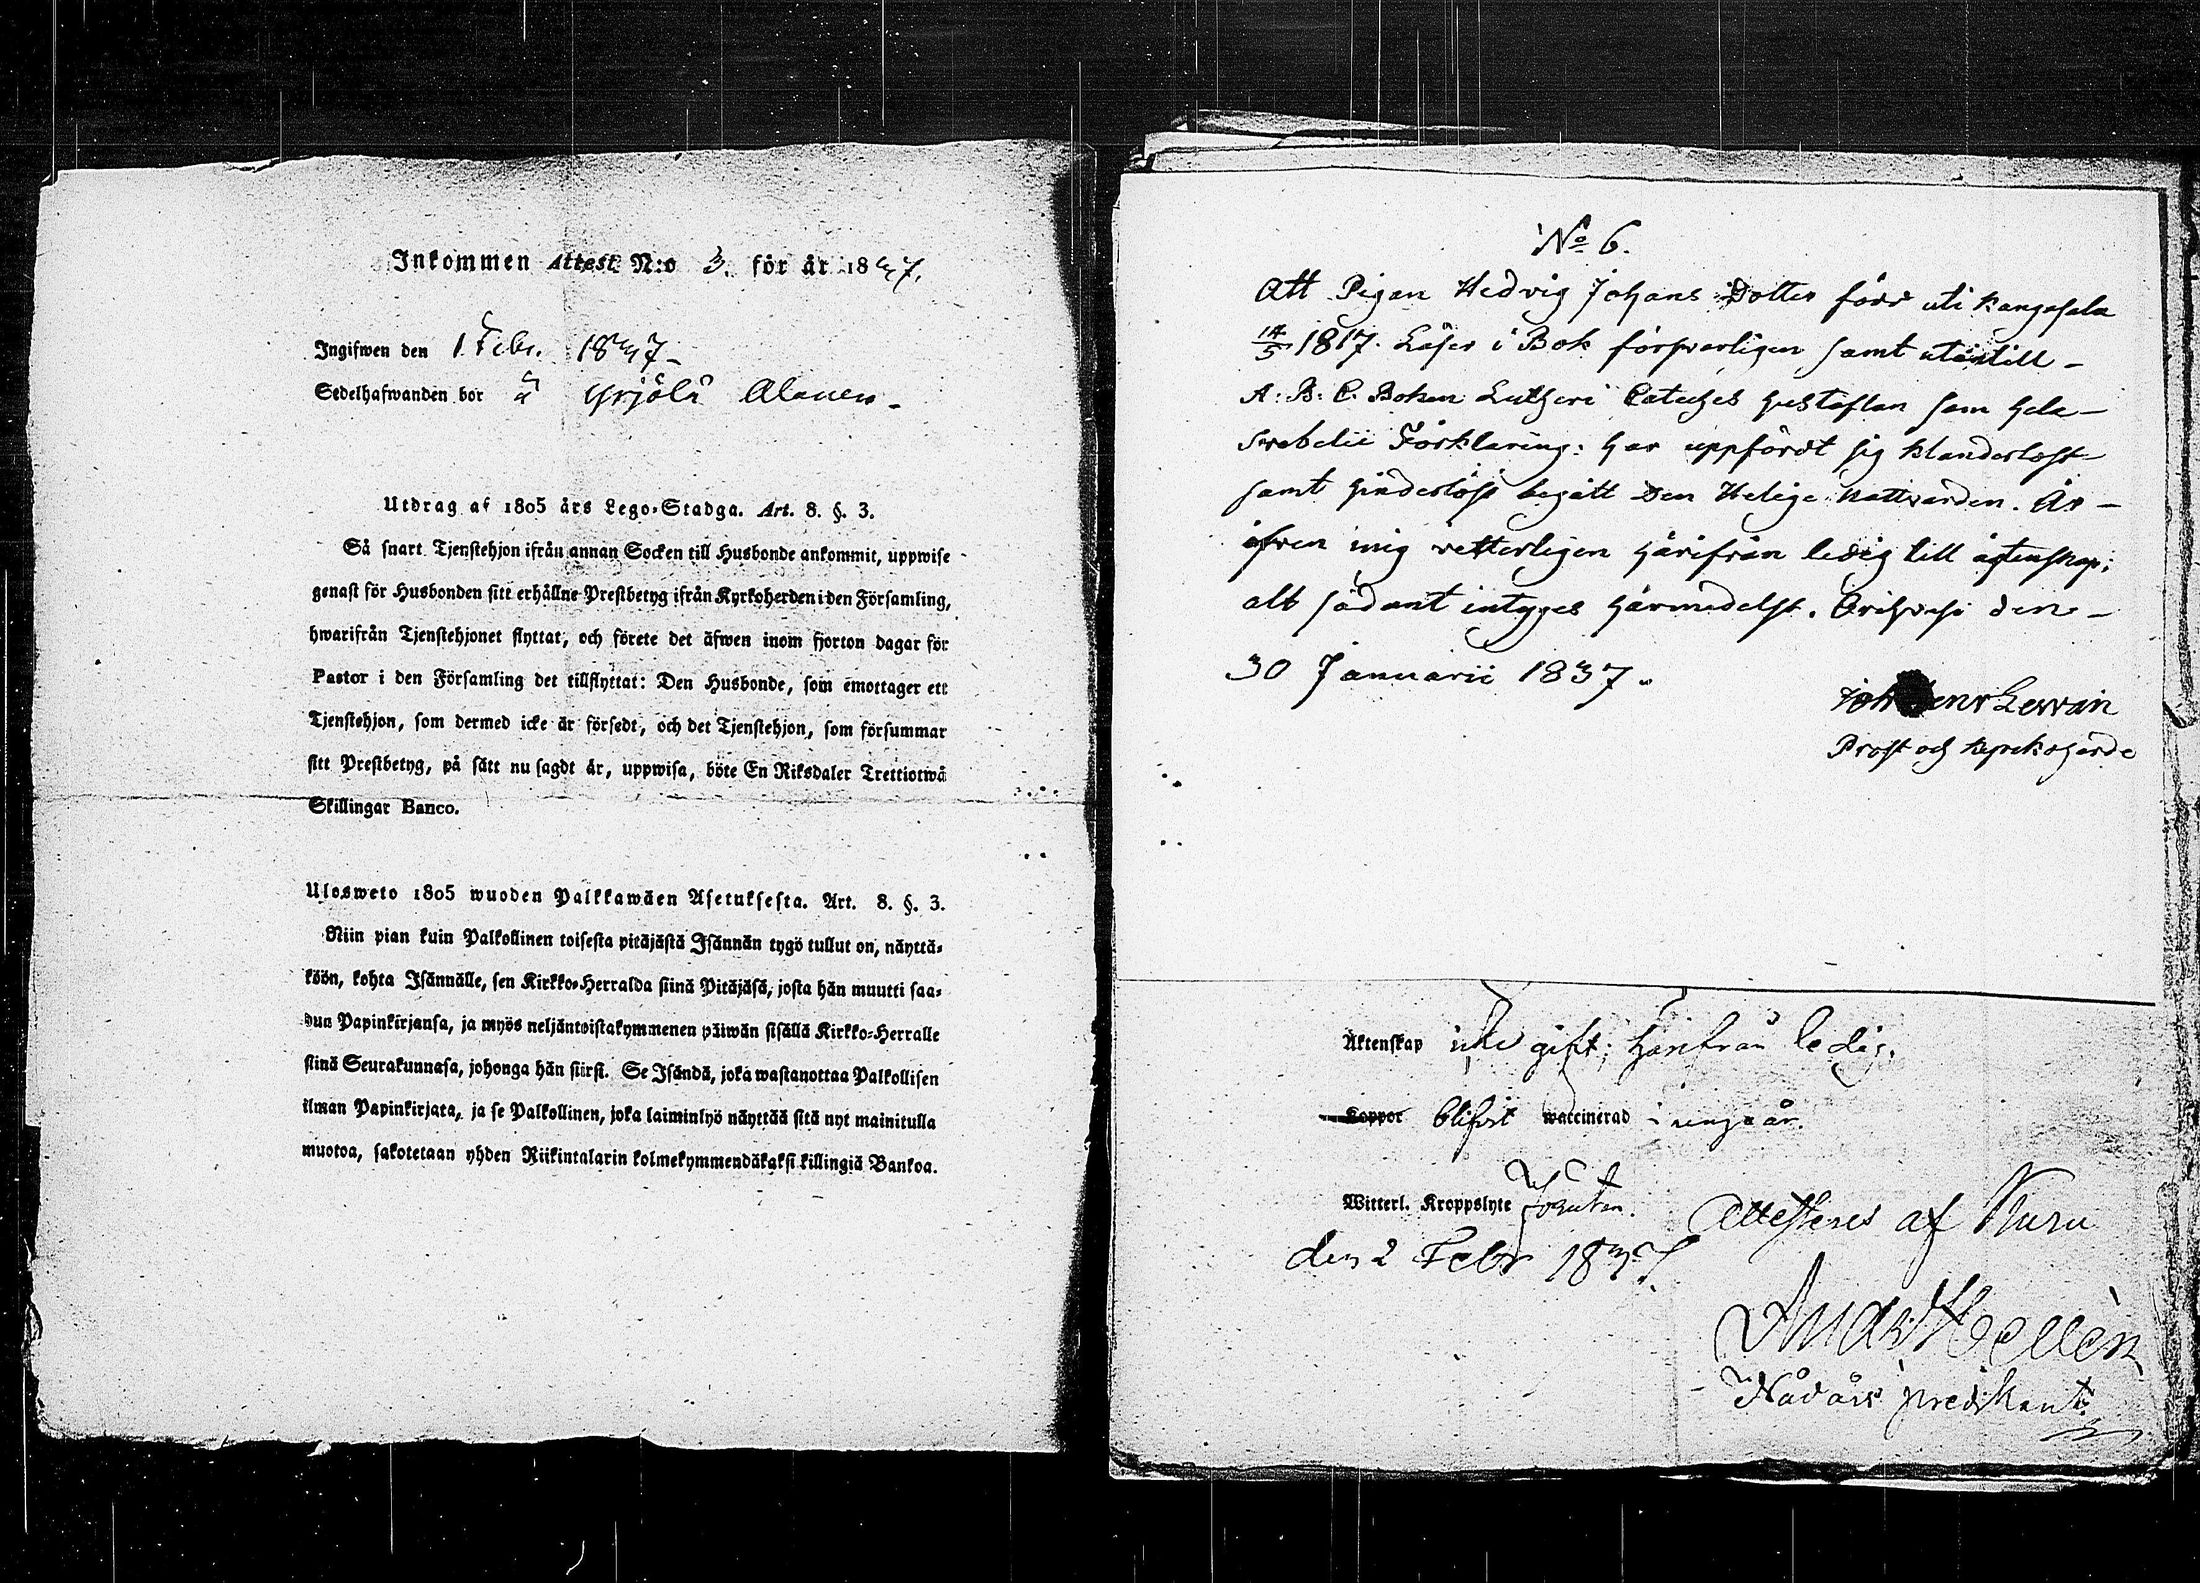 Inkommen Attest N:o 3. för år 1837.
Ingifwen den 1 Febr. 1837 –
Sedelhafwanden bor å Yrjölä Alanen –
Utdrag af 1805 års Lego-Stadga. Art. 8. §. 3.
Så snart Tjenstehjon ifrån annan Socken till Husbonde ankommit, uppwise
genast för Husbonden sitt erhållne Prestbetyg ifrån Kyrkoherden i den Församling,
hwarifrån Tjenstehjonet flyttat, och förete det äfwen inom fjorton dagar för
Pastor i den Församling det tillflyttat: Den Husbonde, som emottager ett
Tjenstehjon, som dermed icke är försedt, och det Tjenstehjon, som försummar
sitt Prestbetyg, på sätt nu sagdt är, uppwisa, böte En Riksdaler Trettiotwå
Skillingar Banco.
Ulosweto 1805 wuoden Palkkawäen Asetuksesta. Art. 8. §. 3.
Niin pian kuin Palkollinen toisesta pitäjästä Isännän tygö tullut on, näyttä-
köön, kohta Isännälle, sen Kirkko-Herralda siinä Pitäjäsä, josta hän muutti saa-
dun Papinkirjansa, ja myös neljäntoistakymmenen päiwän sisällä Kirkko-Herralle
siinä Seurakunnasa, johonga hän siirsi. Se Isändä, joka wastanottaa Palkollisen
ilman Papinkirjata, ja se Palkollinen, joka laiminlyö näyttää sitä nyt mainitulla
muotoa, sakotetaan yhden Riikintalarin kolmekymmendäkaksi killingiä Bankoa.
No 6.
Att Pigan Hedvig Johans Dotter född uti Kangasala
14/5 1817. Läser i Bok försvarligen samt utantill –
A: B: C. Boken Lutheri Cateches Hustaflan som hela –
Svebelii Förklaring: har uppfördt sig klanderlöst –
samt hinderlöst begått Den Helige Nattvarden. Är –
äfven mig vetterligen härifrån ledig till ägtenskap;
alt sådant intyges härmedelst. Orihvesi den –
30 Januarii 1837.
Joh Henr Lervén
Prost och Kyrkoherde
Äktenskap icke gift; härifrån ledig.
Koppor blifvit waccinerad i unga år.
Witterl. Kroppslyte förutan.
Attesteras af Kuru
den 2 Febr 1837.
And Hellén
Nådårs predikant.